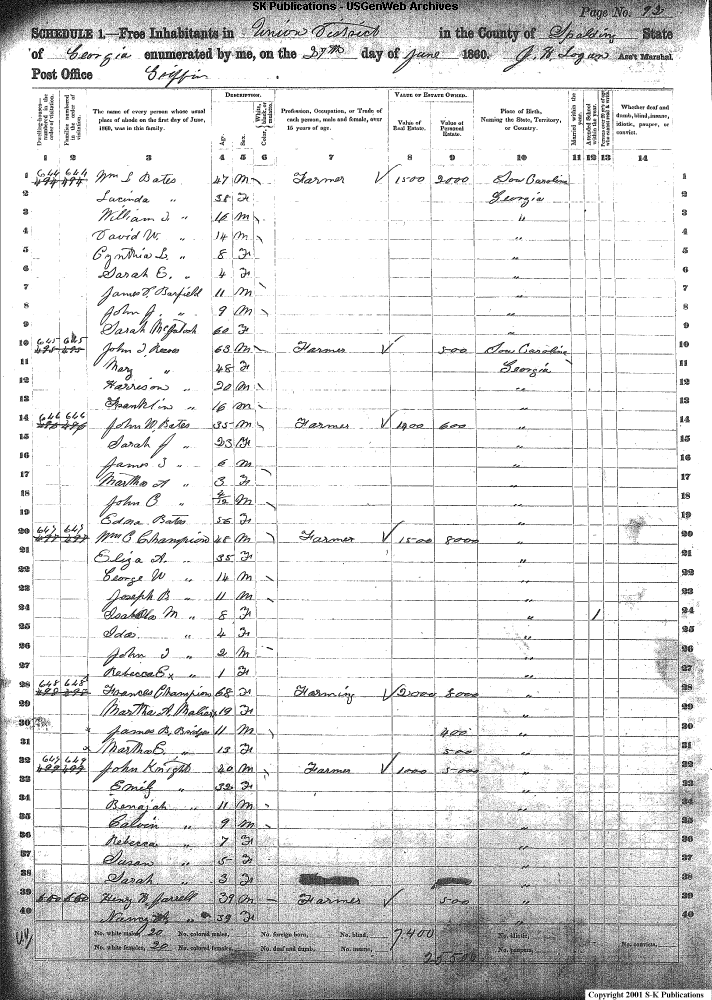 SK Publications - USGenWeb Archives
Page No. 92
SCHEDULE 1.—Free Inhabitants in Union District in the County of Spalding State
of Georgia enumerated by me, on the 27th day of June 1860. J. H. Logan Ass't Marshal.
Post Office Griffin
DESCRIPTION. VALUE OF ESTATE OWNED.
Dwelling-houses—numbered in the order of visitation. Families numbered in the order of visitation. The name of every person whose usual place of abode on the first day of June, 1860, was in this family. Age. Sex. Color, White, black, or mulatto. Profession, Occupation, or Trade of each person, male and female, over 15 years of age. Value of Real Estate. Value of Personal Estate. Place of Birth, Naming the State, Territory, or Country. Married within the year. Attended School within the year. Whether deaf and dumb, blind, insane, idiotic, pauper, or convict.
1 2 3 4 5 6 7 8 9 10 11 12 13 14
1 644 644 Wm S Bates 47 M Farmer 1500 2000 Sou Carolina 1
2 Lucinda " 38 F Georgia 2
3 William J " 16 M " 3
4 David W. " 14 M " 4
5 Cynthia L. " 8 F " 5
6 Sarah E. " 4 F " 6
7 James T. Barfield 11 M " 7
8 John J. " 9 M " 8
9 Sarah McIntosh 60 F " 9
10 645 645 John J Reeves 63 M Farmer 500 Sou Carolina 10
11 Mary " 48 F Georgia 11
12 Harrison " 20 M " 12
13 Franklin " 16 M " 13
14 646 646 John W Bates 35 M Farmer 1400 600 " 14
15 Sarah J " 23 F " 15
16 James J " 6 M " 16
17 Martha A " 3 F " 17
18 John C " M " 18
19 Edna Bates 56 F " 19
20 647 647 Wm C Champion 48 M Farmer 1500 8000 " 20
21 Eliza A. " 35 F " 21
22 George W " 14 M " 22
23 Joseph B " 11 M " 23
24 Isabella M " 8 F " 1 24
25 Ida " 4 F " 25
26 John J " 2 M " 26
27 Rebecca E " 1 F " 27
28 648 648 Frances Champion 68 F Farming 2000 8000 " 28
29 Martha A. 19 F " 29
30 James B. Bridges 11 M 400 " 30
31 Martha E. " 13 F 500 " 31
32 649 649 John Knight 40 M Farmer 1000 5000 " 32
33 Emily " 32 F " 33
34 Benajah " 11 M " 34
35 Calvin " 9 M " 35
36 Rebecca " 7 F " 36
37 Susan " 5 F " 37
38 Sarah " 3 F " 38
39 650 650 Henry Jarrell 39 M Farmer 500 " 39
40 Nancy " 39 F " 40
No. white males, 20 No. colored males, No. foreign born, No. blind, 7400 No. idiotic,
No. white females, 20 No. colored females, No. deaf and dumb, No. insane, 25,500 No. paupers, No. convicts,
Copyright 2001 S-K Publications